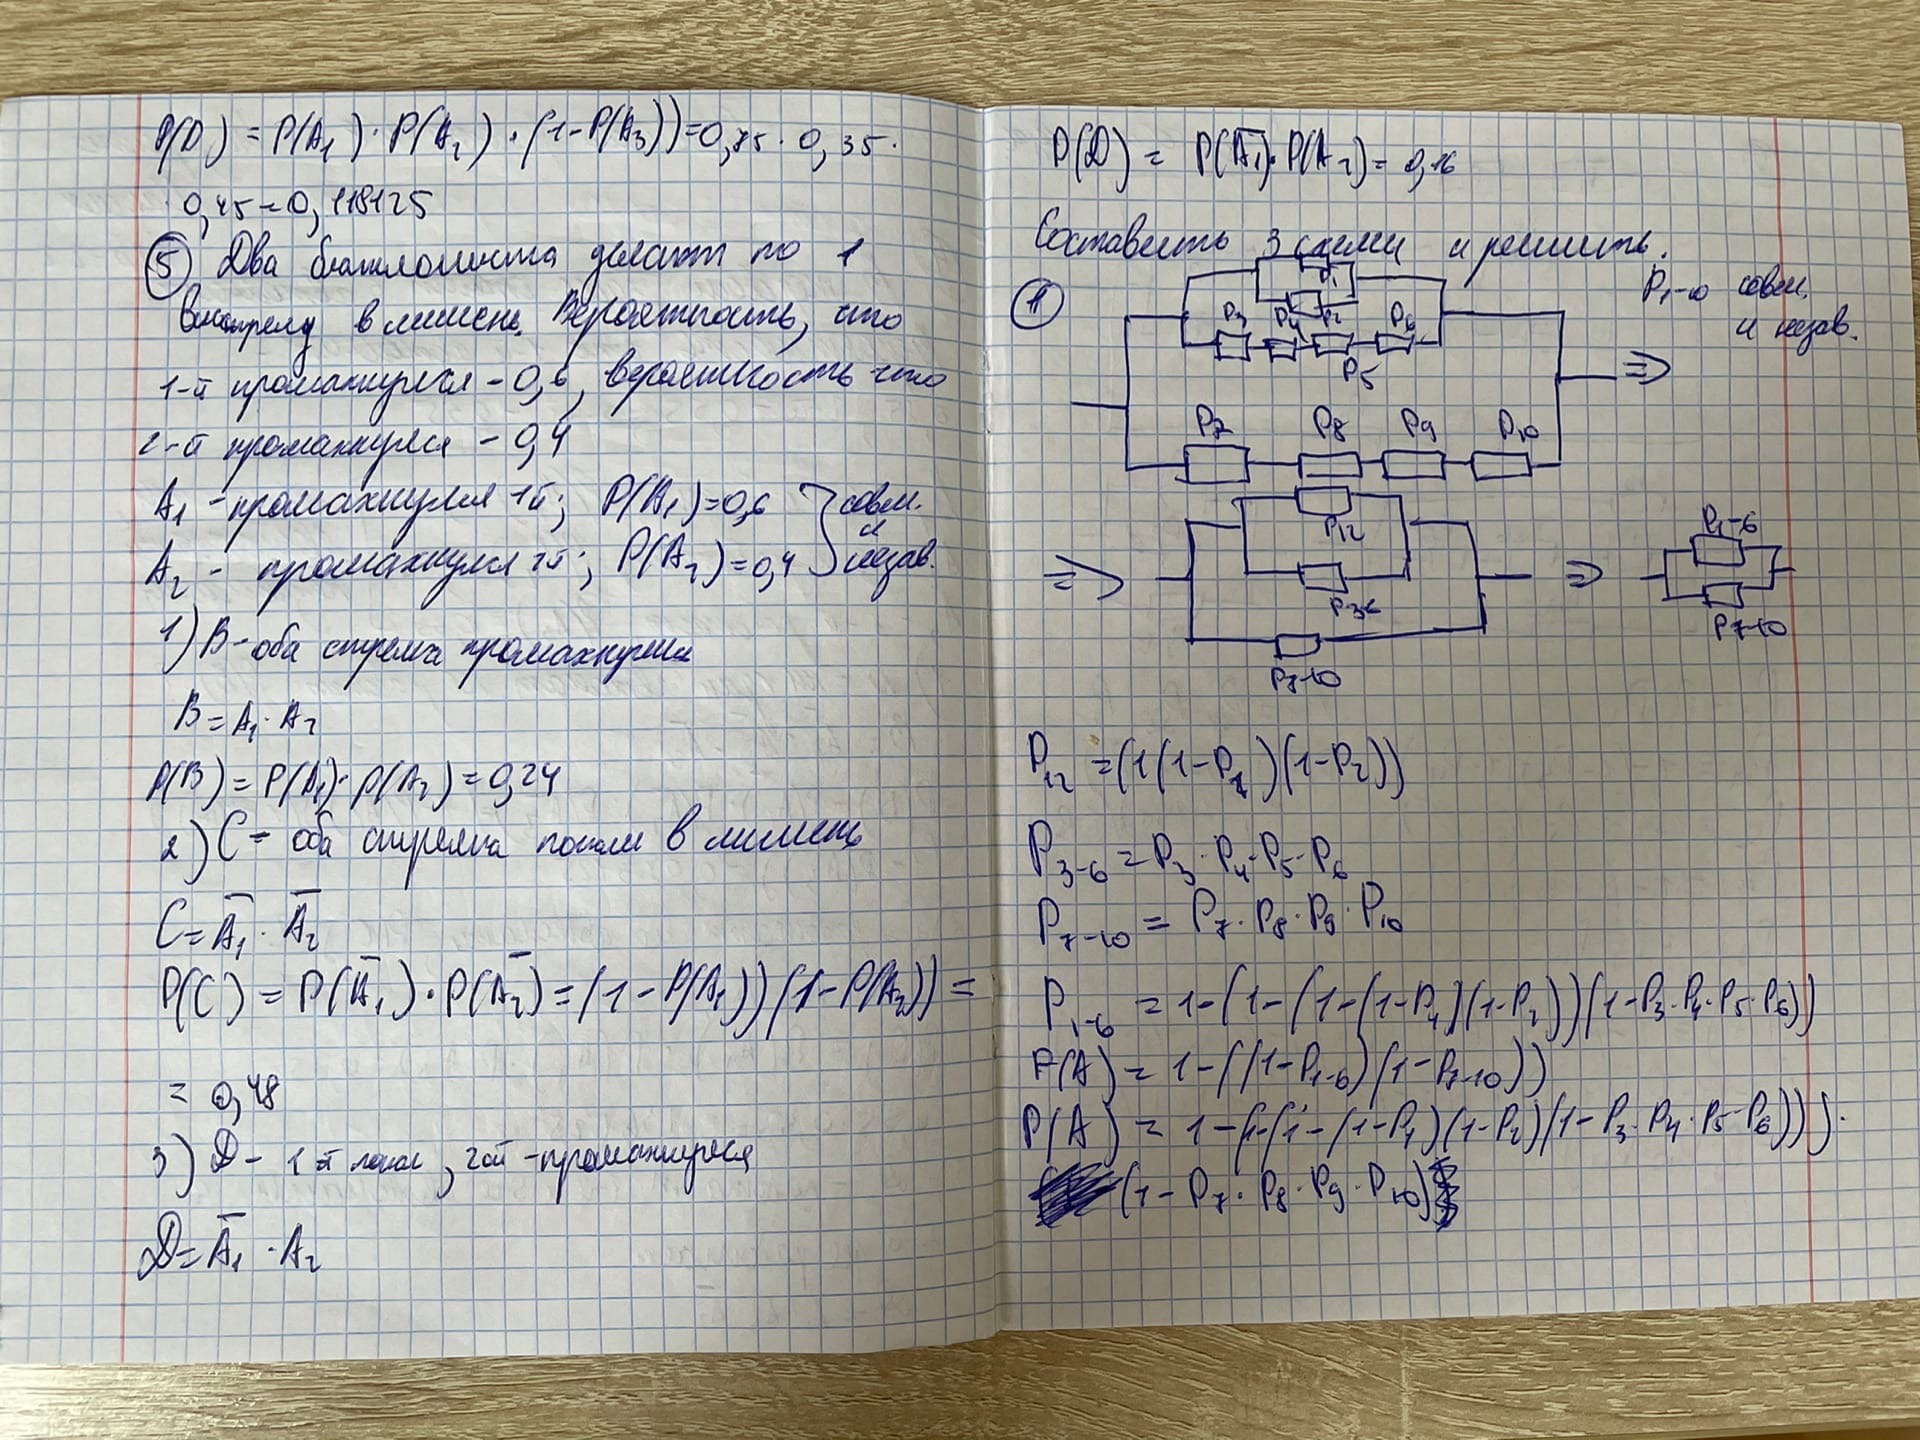 P(D) = P(A₁)·P(A₂)·(1-P(A₃))=0,75·0,35·
·0,45=0,118125
⑤ Два биатлониста делают по 1
выстрелу в мишень. Вероятность, что
1-й промахнулся - 0,6, вероятность что
2-й промахнулся - 0,4
A₁ - промахнулся 1й; P(A₁)=0,6 } совм.
и
A₂ - промахнулся 2й; P(A₂)=0,4 } незав.
1) B - оба стрелка промахнулись
B = A₁·A₂
P(B) = P(A₁)·P(A₂) = 0,24
2) C - оба стрелка попали в мишень
C = A̅₁ · A̅₂
P(C) = P(A̅₁)·P(A̅₂) = (1-P(A₁))(1-P(A₂)) =
= 0,48
3) D - 1й попал, 2ой - промахнулся
D = A̅₁ · A₂
P(D) = P(A̅₁)·P(A₂) = 0,16
Составить 3 схемы и решить.
① P₁₋₁₀ совм.
и незав.
P₁
P₃ P₄ P₂ P₆
P₅
⇒
P₇ P₈ P₉ P₁₀
⇒ P₁₂ ⇒ P₁₋₆
P₃₆
P₇₋₁₀
P₇₋₁₀
P₁₂ = (1(1-P₁)(1-P₂))
P₃₋₆ = P₃·P₄·P₅·P₆
P₇₋₁₀ = P₇·P₈·P₉·P₁₀
P₁₋₆ = 1-(1-(1-(1-P₁)(1-P₂))(1-P₃·P₄·P₅·P₆))
P(A) = 1-((1-P₁₋₆)(1-P₇₋₁₀))
P(A) = 1-(1-(1-(1-P₁)(1-P₂)(1-P₃·P₄·P₅·P₆)))·
(1-P₇·P₈·P₉·P₁₀)